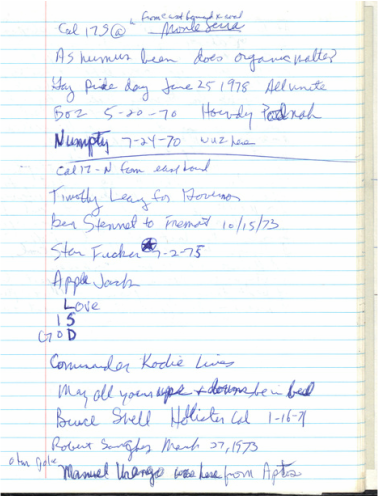 Cal 17 S @
From east bound road
Monte Sereno
As humus been does organic matter?
Gay Pride day June 25 1978 All unite
Boz 5-20-70 Howdy Podnah
Numpty 7-24-70 wuz here
Cal 17-N from east bound
Timothy Leary for Governor
Ben Stennet to Fremont 10/15/73
Star Fucker 7-2-75
Apple Jack
Love
IS
GOD
Commander Kodie Lives
May all your ups & downs be in bed
Bruce Shell Hollister Cal 1-16-71
Robert March 27, 1973
Manuel was here from Aptos